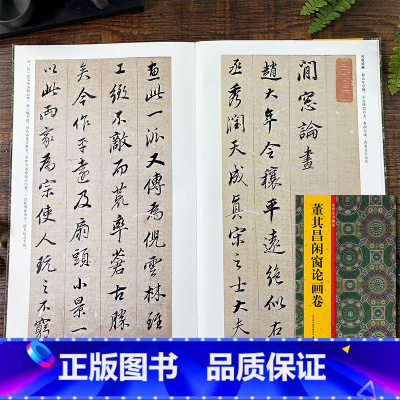 閒窓論畫
趙大年令穰平遠絶似右
丞秀潤天成真宋之士大夫
畫此一派又傳為倪雲林雖
工緻不敵而荒率蒼古勝
矣今作平遠及扇頭小景一
以此兩家為宗使人玩之不窮
董其昌闲窗论画卷